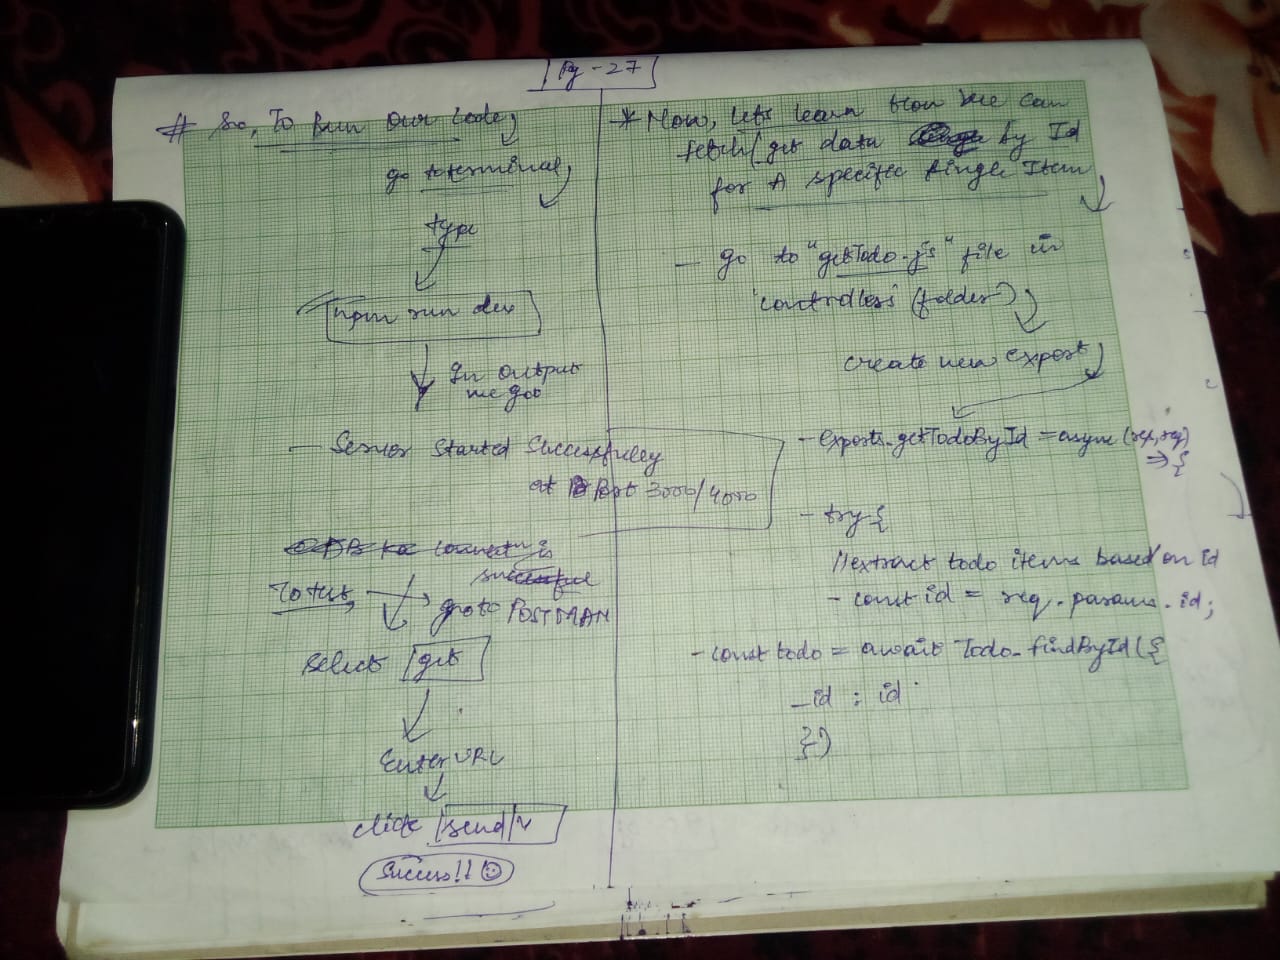 Pg - 27
# So, To Run Our Code,
go to terminal,
type
npm run dev
In output
we got
- Server Started Successfully
at Port 3000/4000
To test, go to POSTMAN
Select get
Enter URL
click send
Success!! ☺
* Now, lets learn how we can
fetch/get data by Id
for A specific single Item
- go to "getTodo.js" file in
'controllers' (folder)
create new export
- exports.getTodoById = async (req, res)
=> {
- try {
// extract todo items based on id
- const id = req.params.id;
- const todo = await Todo.findById({
_id : id
})